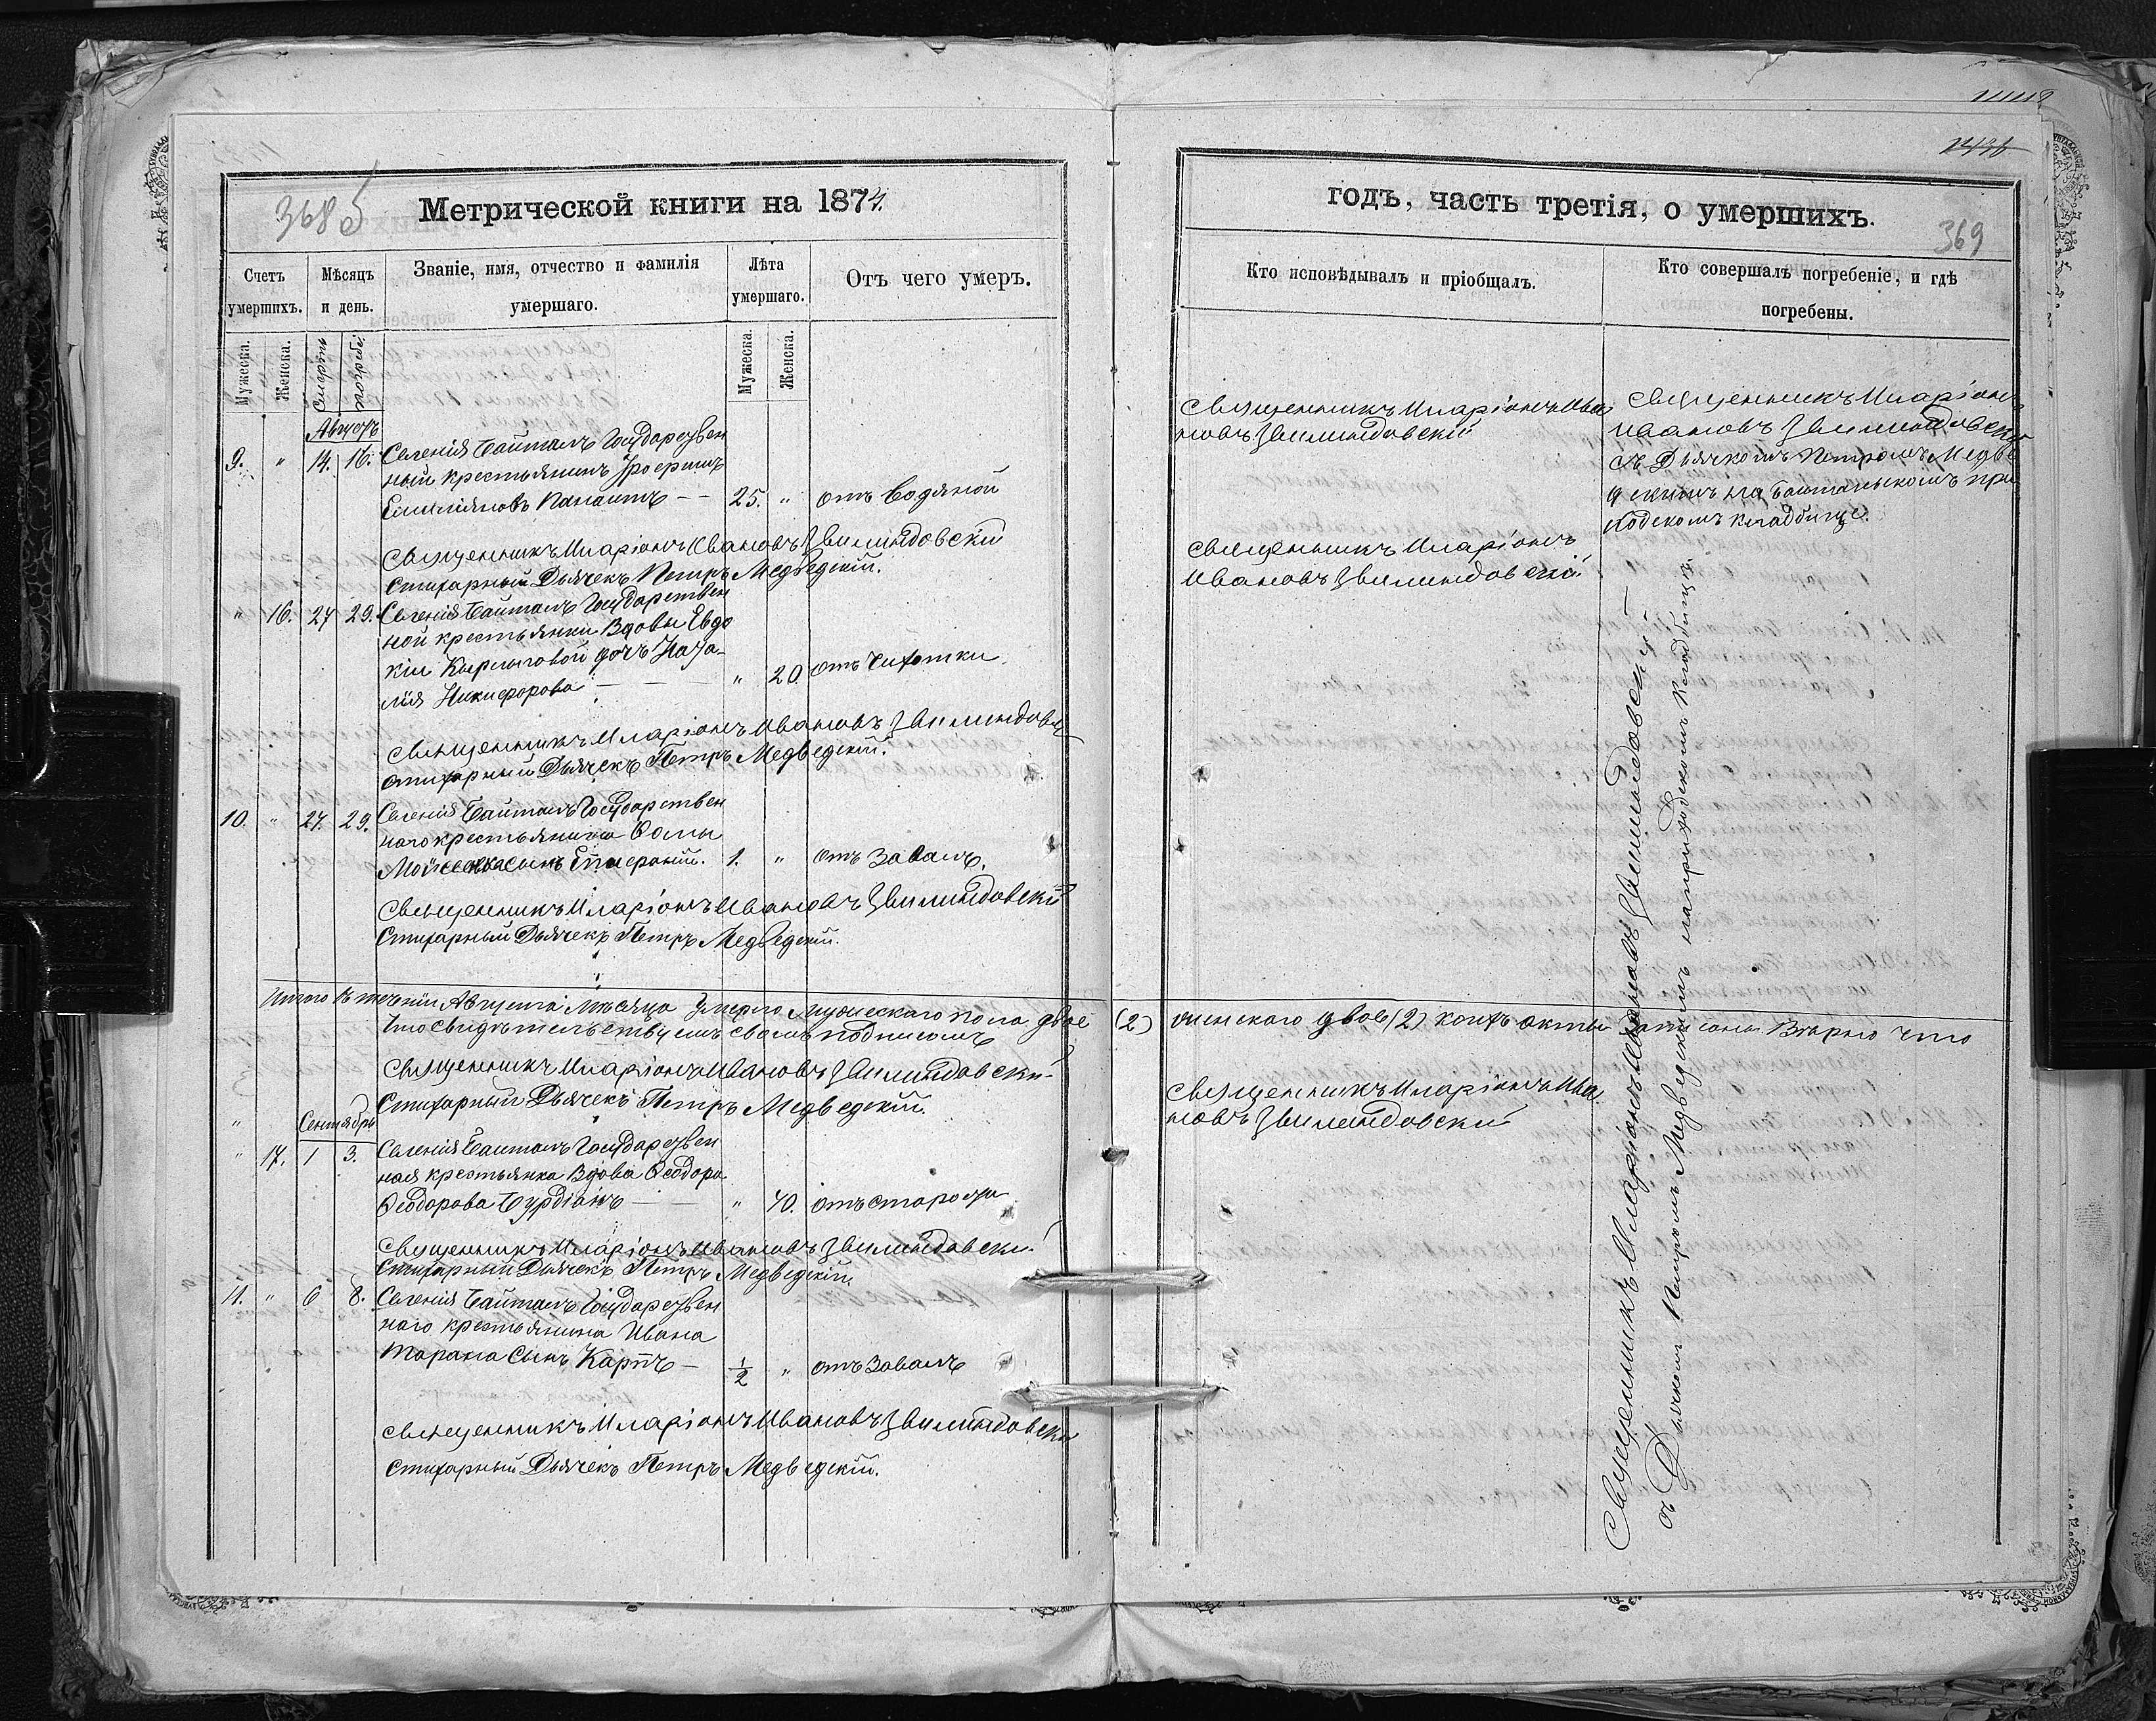 368 б
Метрической книги на 1874.
Счетъ умершихъ.
Мѣсяцъ и день.
Званіе, имя, отчество и фамилія умершаго.
Лѣта умершаго.
Отъ чего умеръ.
Мужеска.
Женска.
Смерть
погреб:
Мужеска.
Женска.
Августъ
9. " 14. 16. Селенія Баймакъ Государствен
ный крестьянинъ
Емиліяновъ Панаитъ — — 25. " отъ Водяной
Священникъ Иларіонъ Ивановъ Звилиндовскій
Стихарный Дьячекъ Петръ Медведскій.
" 16. 27 29. Селенія Баймакъ Государствен
ной крестьянки Вдовы Евдо
кіи Кырлыговой дочь Ната-
лія Никифорова — " 20. отъ Сухотки
Священникъ Иларіонъ Ивановъ Звилиндовск
стихарный Дьячекъ Петръ Медведскій.
10. " 27. 29. Селенія Баймакъ Государствен
наго крестьянина Ѳомы
сынъ 1. " отъ Завалъ.
Священникъ Иларіонъ Ивановъ Звилиндовскій
Стихарный Дьячекъ Петръ Медведскій.
Итого въ теченіи Августа Мѣсяца умерло Мужескаго пола двое
что свидѣтельствуемъ своимъ подписомъ
Священникъ Иларіонъ Ивановъ Звилиндовскій
Стихарный Дьячекъ Петръ Медведскій.
" Сентябрь
" 17. 1 3. Селенія Баймакъ Государствен
ная крестьянка Вдова Ѳеодора
Ѳеодорова Бурдіанъ — " 70. отъ старости
Священникъ Иларіонъ Ивановъ Звилиндовскій
Стихарный Дьячекъ Петръ Медведскій.
11. " 6 8. Селенія Баймакъ Государствен
наго крестьянина Ивана
Тарана Сынъ Карпъ — 1/2 " отъ Завалъ
Священникъ Иларіонъ Ивановъ Звилиндовски
стихарный Дьячекъ Петръ Медведскій.
годъ, часть третія, о умершихъ.
369
Кто исповѣдывалъ и пріобщалъ.
Кто совершалъ погребеніе, и гдѣ погребены.
Священникъ Иларіонъ Ива
новъ Звилиндовскій
Священникъ Иларіонъ
Ивановъ Звилиндовскій
съ Дьячкомъ Петромъ Медве
дскимъ на при
ходскомъ кладбище.
Священникъ Иларіонъ
Ивановъ Звилиндовскій.
(2) женскаго двое (2) акты записаны Вѣрно что
Священникъ Иларіонъ Ива
новъ Звилиндовскій
Священникъ Иларіонъ Ивановъ Звилиндовскій
съ Дьячкомъ Петромъ Медведскимъ на приходскомъ Кладбище.